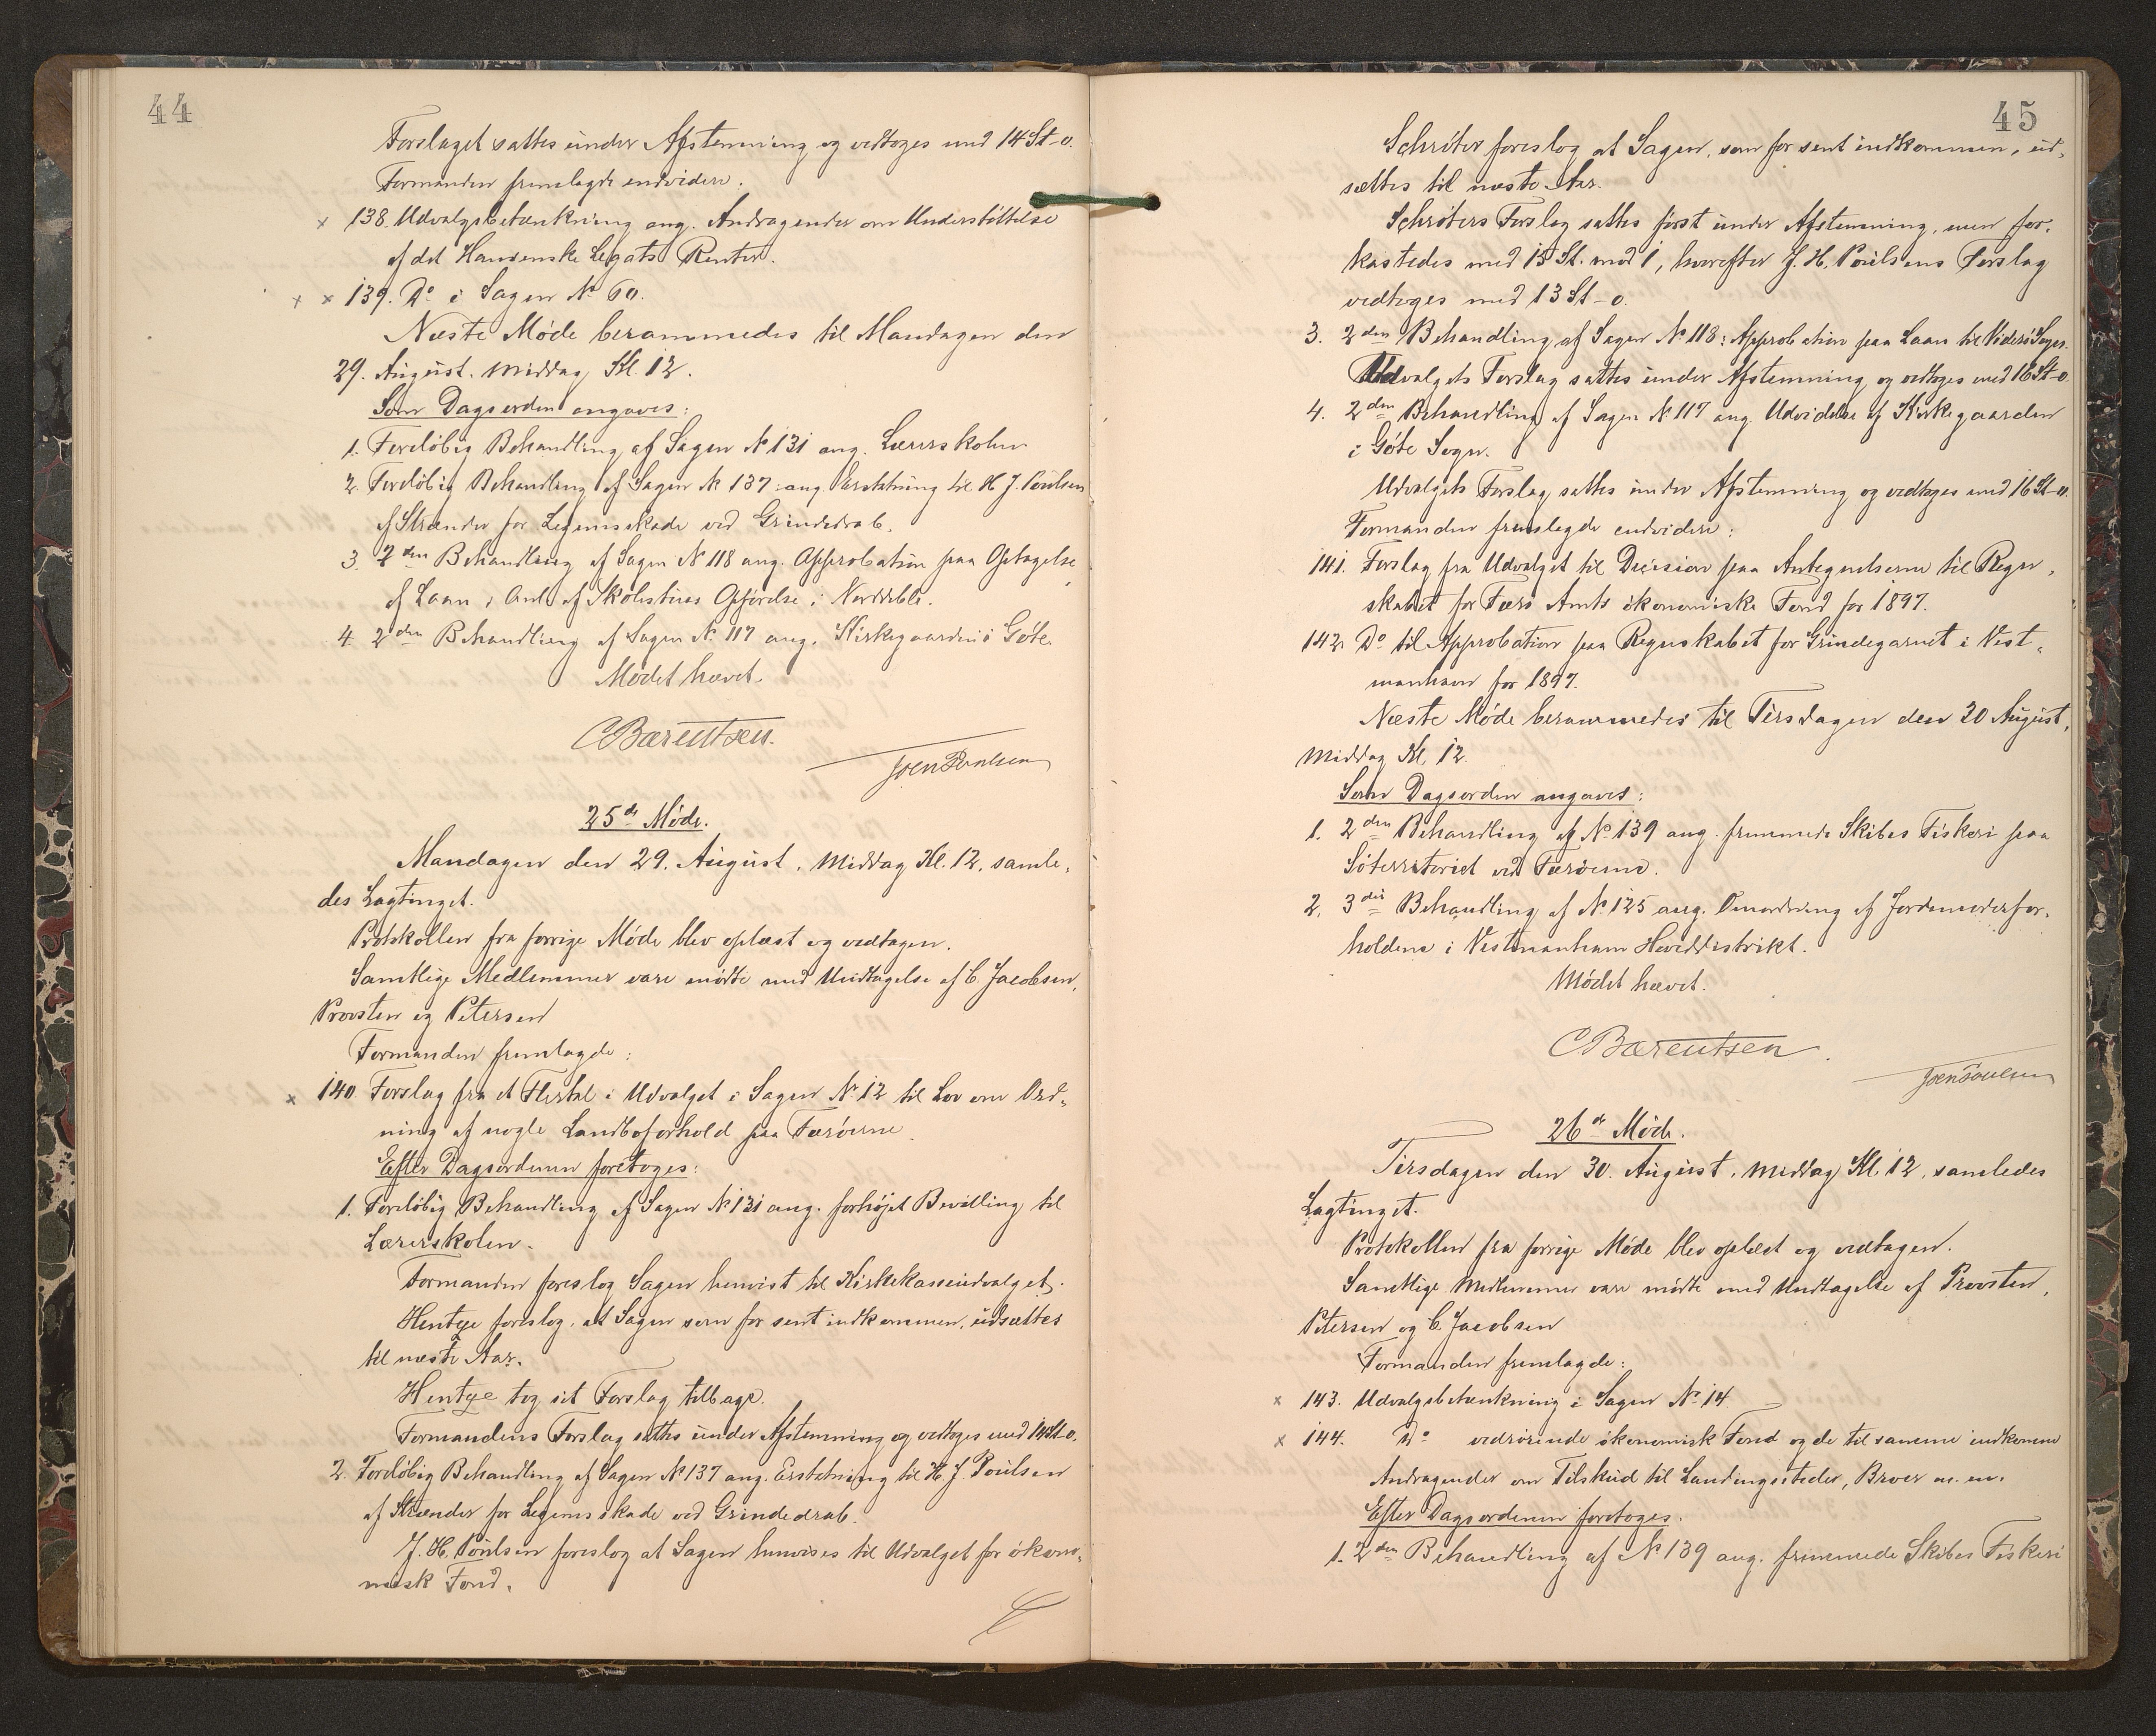 44
Forslaget sattes under Afstemning og vedtoges med 14 St - 0.
Formanden fremlagde endvidere.
x 138. Udvalgsbetænkning ang. Andragender om Understöttelse
af det Hansenske Legats Renter.
x x 139. Do i Sagen No 60.
Næste Møde berammedes til Mandagen den
29. August. Middag Kl. 12.
Som Dagsorden angaves:
1. Foreløbig Behandling af Sagen No 131 ang. Lærerskolen
2. Foreløbig Behandling af Sagen No 137: ang. Erstatning til H. J. Poulsen
af Strænder for Legemsskade ved Grindedrab.
3. 2den Behandling af Sagen No 118 ang. Approbation paa Optagelse
af Laan i Anl. af Skolestues Opførelse i Norddeble.
4 2den Behandling af Sagen No 117 ang. Kirkegaarden i Göte.
Mødet hævet.
C Bærentsen.
Joen Poulsen
25de Møde.
Mandagen den 29. August, Middag Kl. 12, samle-
des Lagtinget.
Protokollen fra forrige Møde blev oplæst og vedtagen.
Samtlige Medlemmer vare mødte med Undtagelse af C. Jacobsen,
Provsten og Petersen
Formanden fremlagde:
x 140 Forslag fra et Flertal i Udvalget i Sagen No 12 til Lov om Ord-
ning af nogle Landboforhold paa Færöerne.
Efter Dagsordenen foretoges:
1. Foreløbig Behandling af Sagen No 131 ang. forhøjet Bevilling til
Lærerskolen.
Formanden foreslog Sagen henvist til Kirkekasseudvalget.
Hentze foreslog, at Sagen som for sent indkommen, udsættes
til næste Aar.
Hentze tog sit Forslag tilbage.
Formandens Forslag sattes under Afstemning og vedtoges med 14 St - 0.
2. Foreløbig Behandling af Sagen No 137 ang. Erstatning til H. J. Poulsen
af Strænder for Legemsskade ved Grindedrab.
J. H. Poulsen foreslog at Sagen henvises til Udvalget for økono-
misk Fond.
45
Schröter foreslog at Sagen, som for sent indkommen, ud-
sættes til næste Aar.
Schröters Forslag sattes först under Afstemning, men for-
kastedes med 13 St. mod 1, hvorefter J. H. Poulsens Forslag
vedtoges med 13 St - 0.
3. 2den Behandling af Sagen No 118: Approbation paa Laan til Viderö Sogn.
Udvalgets Forslag sattes under Afstemning og vedtoges med 16 St - 0.
4. 2den Behandling af Sagen No 117 ang. Udvidelse af Kirkegaarden
i Göte Sogn.
Udvalgets Forslag sattes under Afstemning og vedtoges med 16 St - 0.
Formanden fremlagde endvidere:
141. Forslag fra Udvalget til Decision paa Antegnelserne til Regn-
skabet for Færö Amts ökonomiske Fond for 1897.
142. Do til Approbation paa Regnskabet for Grindegarnet i Vest-
manhavn for 1897.
Næste Møde berammedes til Tirsdagen den 30 August,
Middag Kl. 12.
Som Dagsorden angaves:
1. 2den Behandling af No 139 ang. fremmede Skibes Fiskeri paa
Söterritoriet ved Færöerne.
2. 3die Behandling af No 125 ang. Omordning af Jordemoderfor-
holdene i Vestmanhavn Hoveddistrikt.
Mødet hævet.
C Bærentsen.
Joen Poulsen
26de Møde.
Tirsdagen den 30. August, Middag Kl. 12, samledes
Lagtinget.
Protokollen fra forrige Møde blev oplæst og vedtagen.
Samtlige Medlemmer vare mødte med Undtagelse af Provsten,
Petersen og C. Jacobsen
Formanden fremlagde:
x 143. Udvalgsbetænkning i Sagen No 14
x 144. Do vedrörende ökonomisk Fond og de til samme indkomne
Andragender om Tilskud til Landingssteder, Broer m. m.
Efter Dagsordenen foretoges.
1. 2den Behandling af No 139 ang. fremmede Skibes Fiskeri